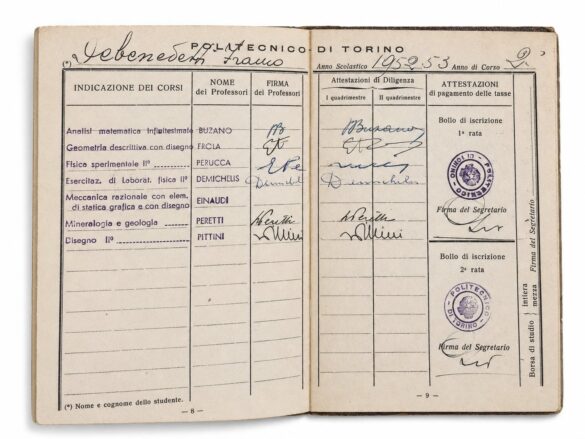 POLITECNICO DI TORINO
(*) Debenedetti Franco
Anno Scolastico 1952-53 Anno di Corso 2°
INDICAZIONE DEI CORSI
NOME dei Professori
FIRMA dei Professori
Attestazioni di Diligenza
I quadrimestre II quadrimestre
ATTESTAZIONI di pagamento delle tasse
Analisi matematica infinitesimale BUZANO Buzano
Geometria descrittiva con disegno
Fisica sperimentale II° PERUCCA
Esercitaz. di Laborat. fisica II° DEMICHELIS
Meccanica razionale con elem.
di statica grafica e con disegno EINAUDI
Mineralogia e geologia PERETTI Peretti Peretti
Disegno II° PITTINI
Bollo di iscrizione
1ª rata
POLITECNICO DI TORINO
Firma del Segretario
Bollo di iscrizione
2ª rata
POLITECNICO DI TORINO
Firma del Segretario
Borsa di studio intiera mezza Firma del Segretario
(*) Nome e cognome dello studente.
— 8 —
— 9 —